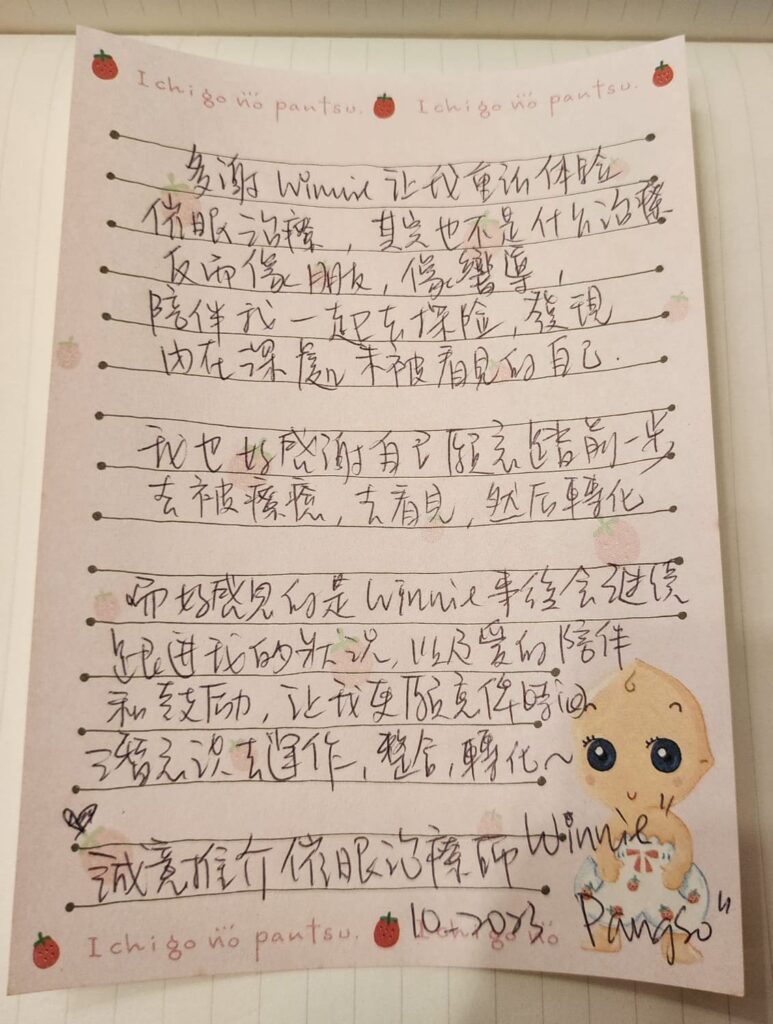 Ichigo no pantsu. Ichigo no pantsu.
多谢 Winnie 让我重新体验
催眠治療，其实也不是什么治療
反而像朋友，像嚮導，
陪伴我一起去探险，發現
内在深處未被看見的自己.
我也好感谢自己願意踏前一步
去被療癒，去看見，然后轉化
而好感見的是 Winnie 事後会继续
跟进我的状况，以及爱的陪伴
和鼓励，让我更願意俾時间
潜意识去運作，整合，轉化～
誠意推介催眠治療師 "Winnie
Pangso"
10.2023
Ichigo no pantsu. Ichigo no